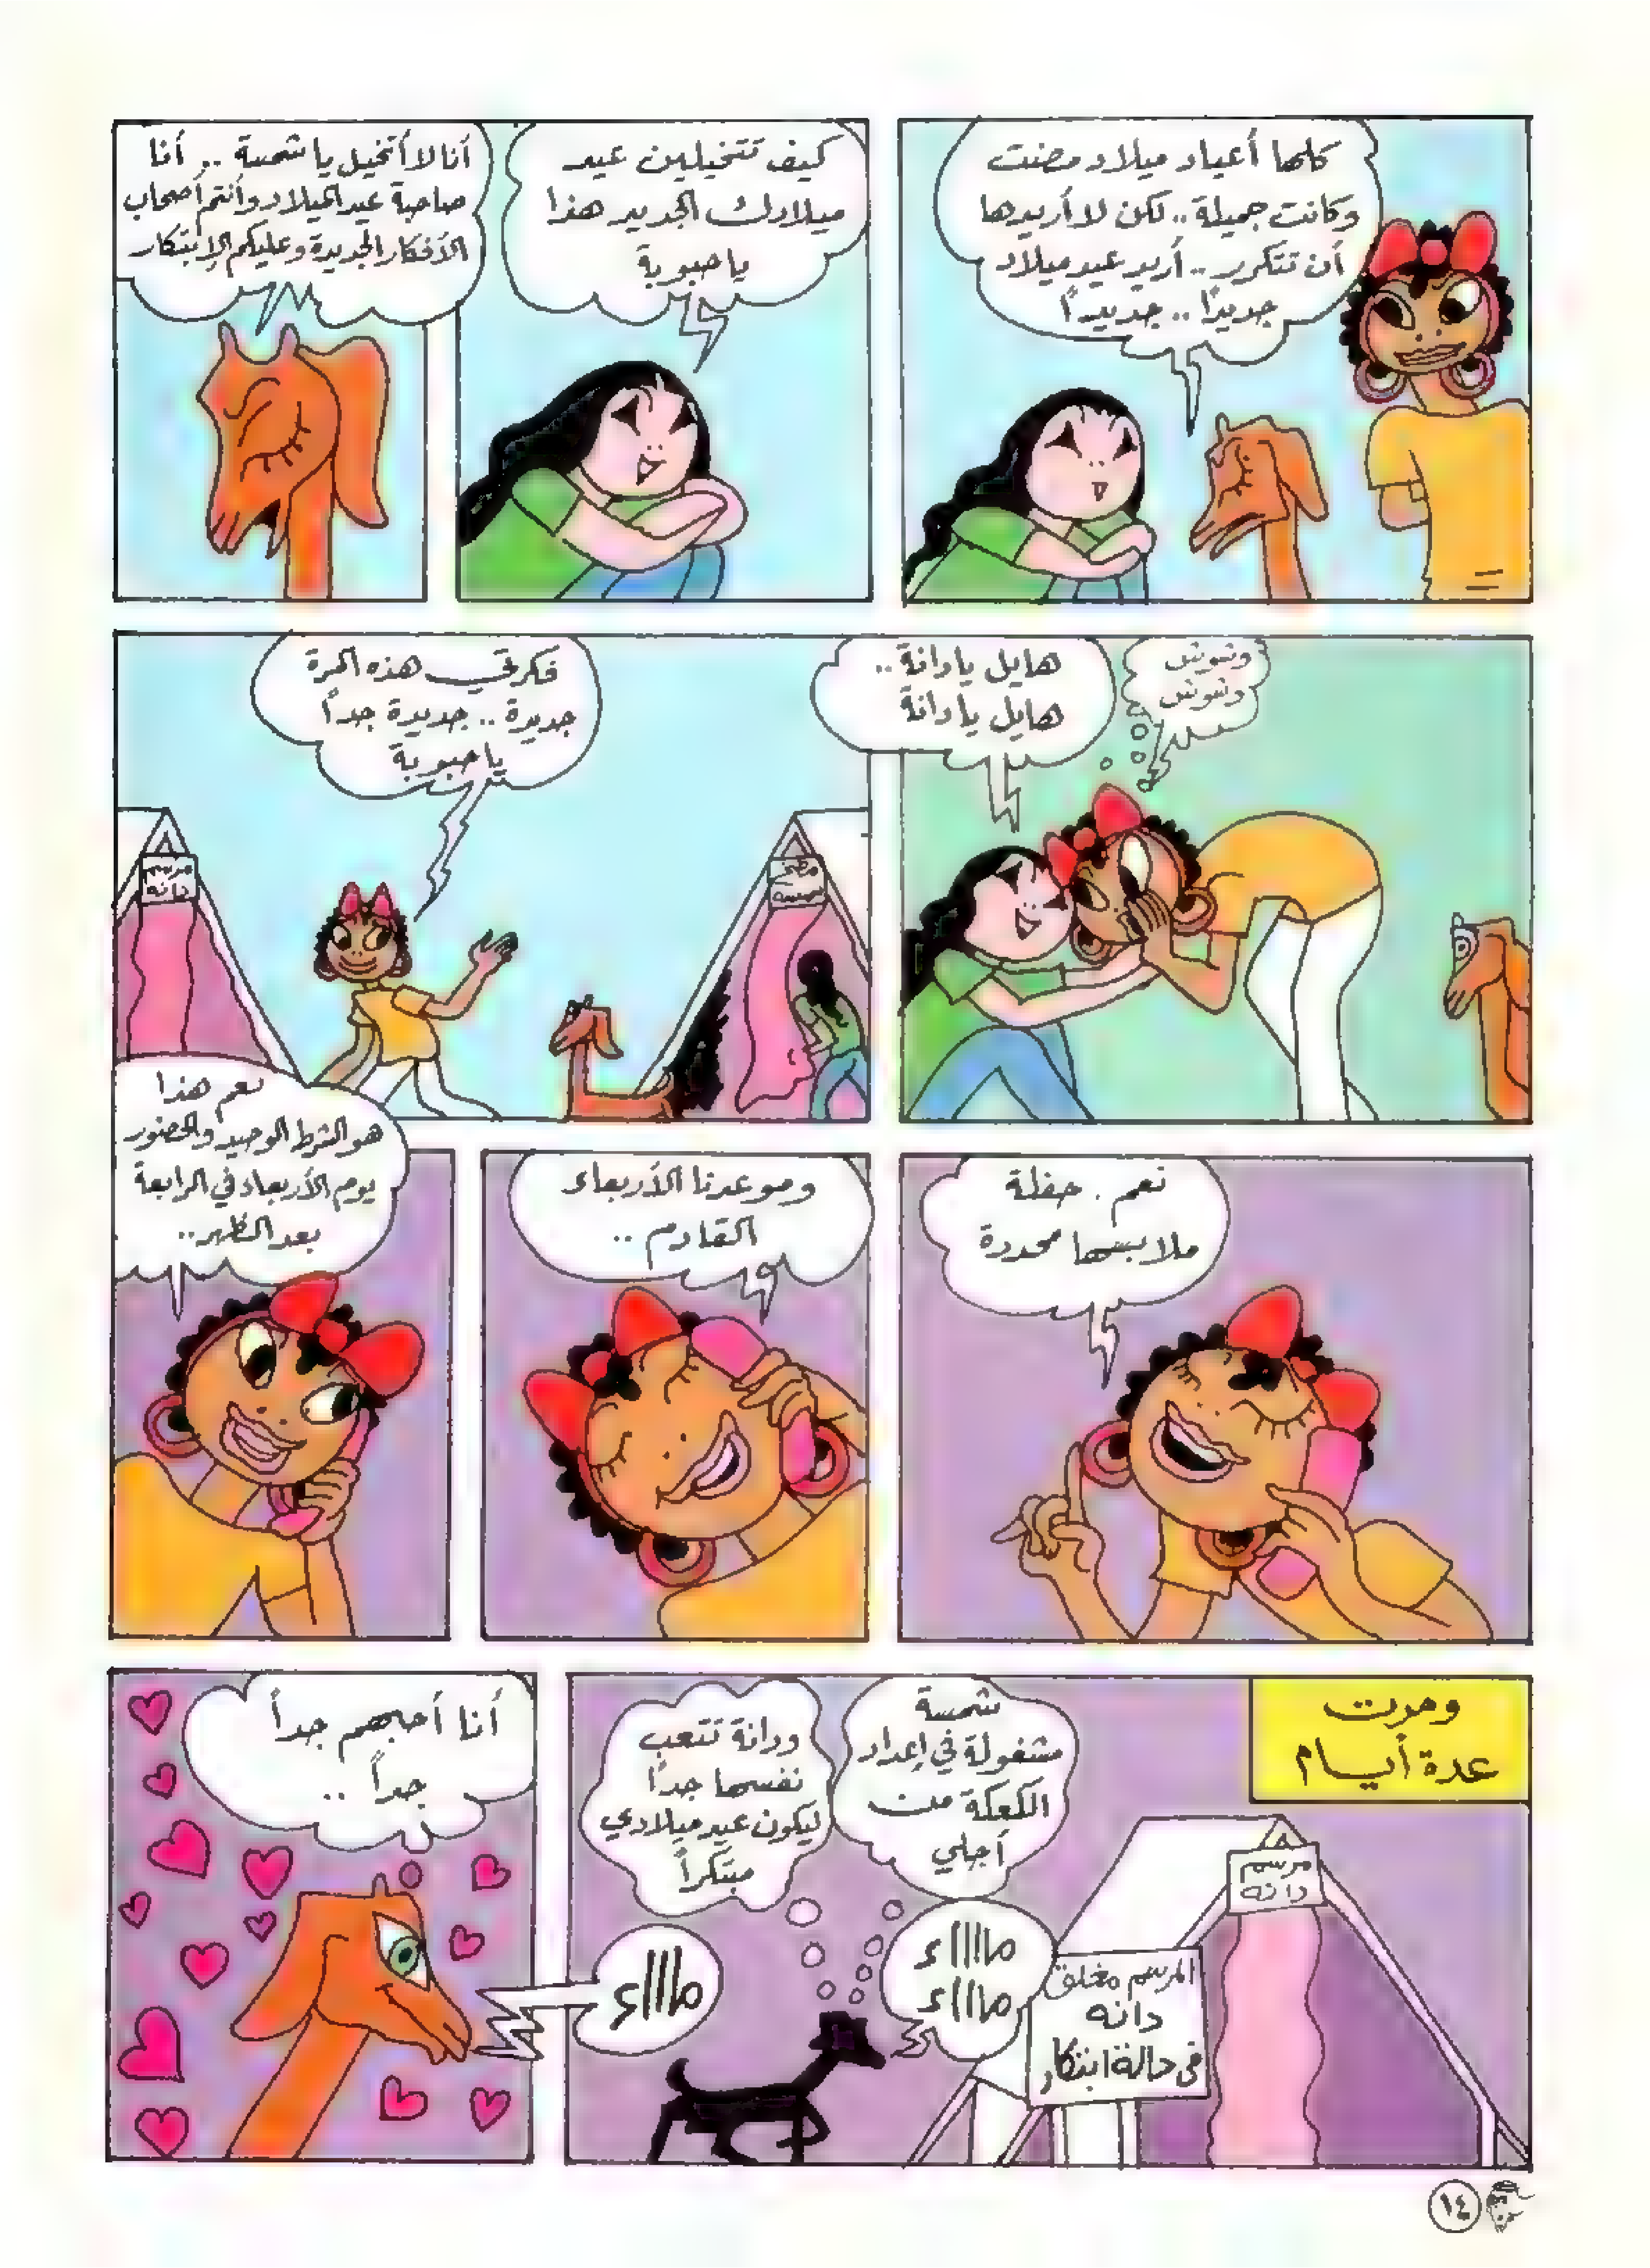 كلها أعياد ميلاد مضت
وكانت جميلة.. لكن لا أريدها
أن تتكرر.. أريد عيد ميلاد
جديدًا.. جديدًا
كيف تتخيلين عيد
ميلادك الجديد هذا
يا حبوبة
أنا لا أتخيل يا شمسة.. أنا
صاحبة عيد الميلاد وأنتم أصحاب
الأفكار الجديدة وعليكم الإبتكار
وشوش
وشوش
هايل يا دانة..
هايل يا دانة
فكرتي هذه المرة
جديدة.. جديدة جداً
يا حبوبة
مطبخ
شمسة
مرسم
دانه
نعم. حفلة
ملابسها محددة
وموعدنا الأربعاء
القادم..
نعم هذا
هو الشرط الوحيد والحضور
يوم الأربعاء في الرابعة
بعد الظهر..
ومرت
عدة أيام
شمسة
مشغولة في إعداد
الكعكة من
أجلي
ودانة تتعب
نفسها جداً
ليكون عيد ميلادي
مبتكراً
مرسم
دانه
المرسم مغلق
دانه
في حالة ابتكار
ماااااء
ماااااء
ماااااء
أنا أحبهم جداً
جداً..
١٤